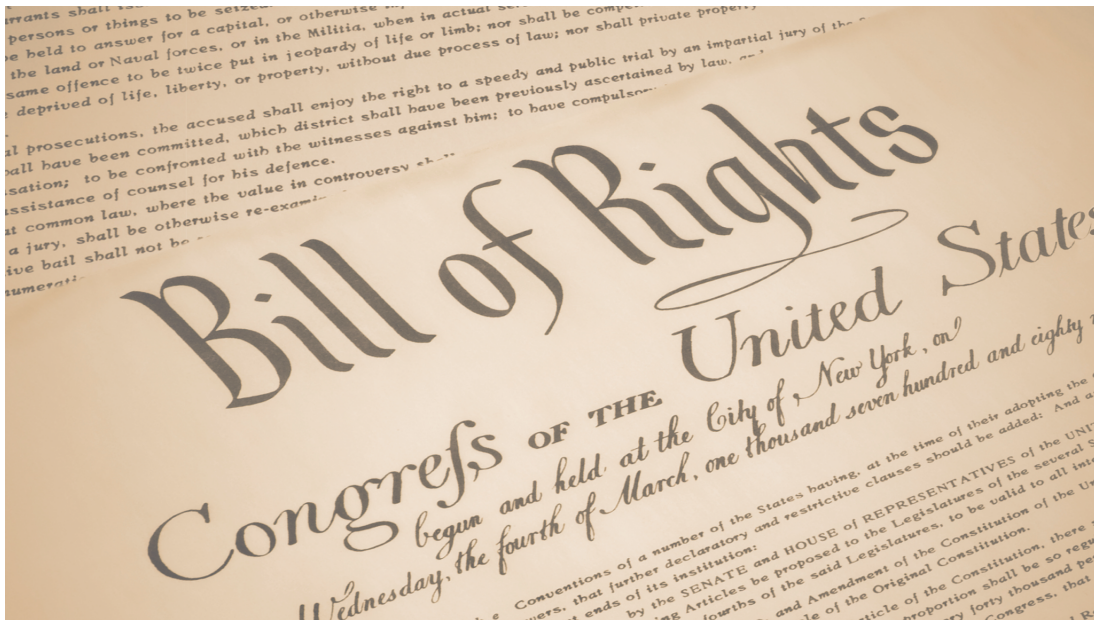 persons or things to be seized
be held to answer for a capital, or otherwise
the land or Naval forces, or in the Militia, when in actual
same offence to be twice put in jeopardy of life or limb; nor shall be
deprived of life, liberty, or property, without due process of law; nor shall private property
prosecutions, the accused shall enjoy the right to a speedy and public trial by an impartial jury of the
shall have been committed, which district shall have been previously ascertained by law,
to be confronted with the witnesses against him; to have
assistance of counsel for his defence.
at common law, where the value in controversy
a jury, shall be otherwise
bail shall not be
Bill of Rights
Congreſs OF THE United States
begun and held at the City of New York, on
Wednesday, the fourth of March, one thousand seven hundred and eighty
Conventions of a number of the States having, at the time of their adopting the
that further declaratory and restrictive clauses should be added: And
ends of its institution:
by the SENATE and HOUSE of REPRESENTATIVES of the
Articles be proposed to the Legislatures of the several
of the said Legislatures, to be valid to all
and Amendment of the Constitution of the
of the Original Constitution.
of the Constitution, there
proportion shall be so
forty thousand
Congress, that